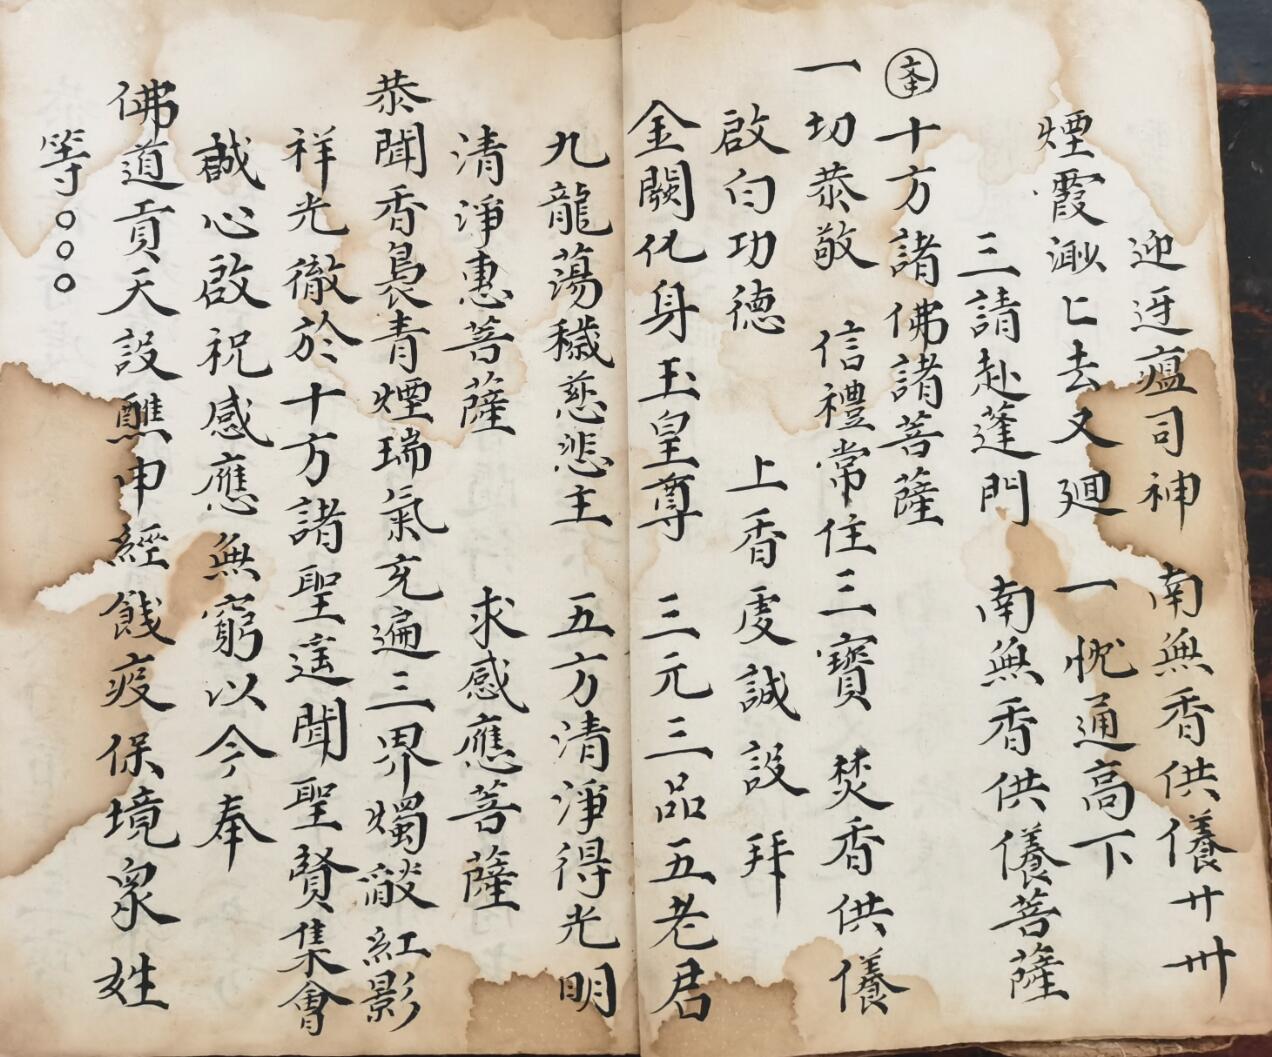 迎迓瘟司神 南無香供養卄卅
煙霞渺匕去又廻 一忱通高下
三請赴蓬門 南無香供養菩薩
十方諸佛諸菩薩
一切恭敬 信禮常住三寶 焚香供養
啟白功德 上香虔誠設拜
金闕化身玉皇尊 三元三品五老君
九龍蕩穢慈悲主 五方清淨得光明
清淨惠菩薩 求感應菩薩
恭聞香裊青煙瑞氣充遍三界燭皎紅影
祥光徹於十方諸聖遙聞聖賢集會
誠心啟祝感應無窮以今奉
佛道貢天設醮申經餞疫保境衆姓
等○○○